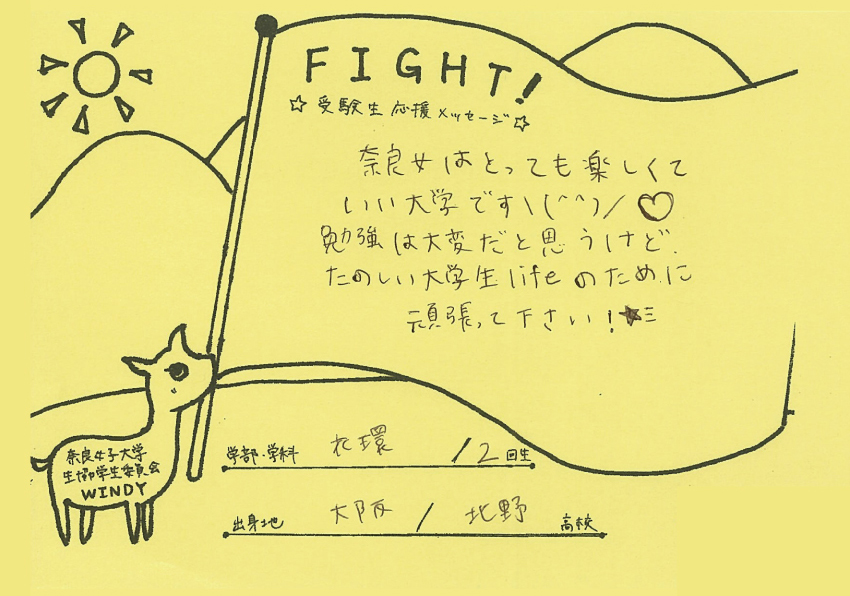 FIGHT!
☆受験生応援メッセージ☆
奈良女はとっても楽しくて
いい大学です\(^^)/♡
勉強は大変だと思うけど、
たのしい大学生lifeのために
頑張って下さい!★ミ
奈良女子大学
生協学生委員会
WINDY
学部・学科 衣環 / 2 回生
出身地 大阪 / 北野 高校